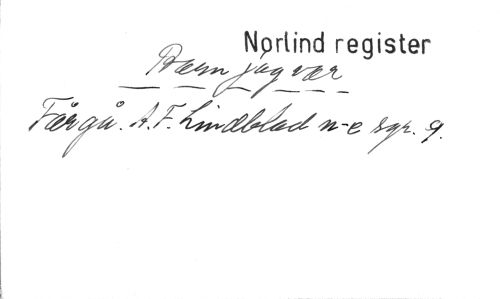 Norlind register
Barn jag var
Fårgå. A. F. Lindblad n-e sgr. 9.